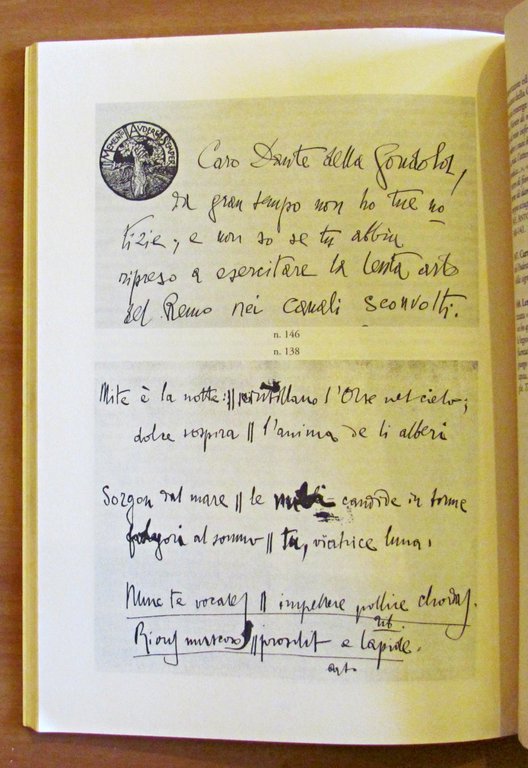 MEMENTO AUDERE SEMPER
Caro Dante della Gondola,
da gran tempo non ho tue no
tizie, e non so se tu abbia
ripreso a esercitare la lenta arte
del Remo nei canali sconvolti.
n. 146
n. 138
Mite è la notte: || scintillano l'Orse nel cielo;
dolce sospira || l'anima de li alberi
Sorgon dal mare || le candide in torme
al sommo || tu, vittrice luna.
Nunc te vocales || impellere pollice chordas.
Rivus muscoso || prosilit e lapide.